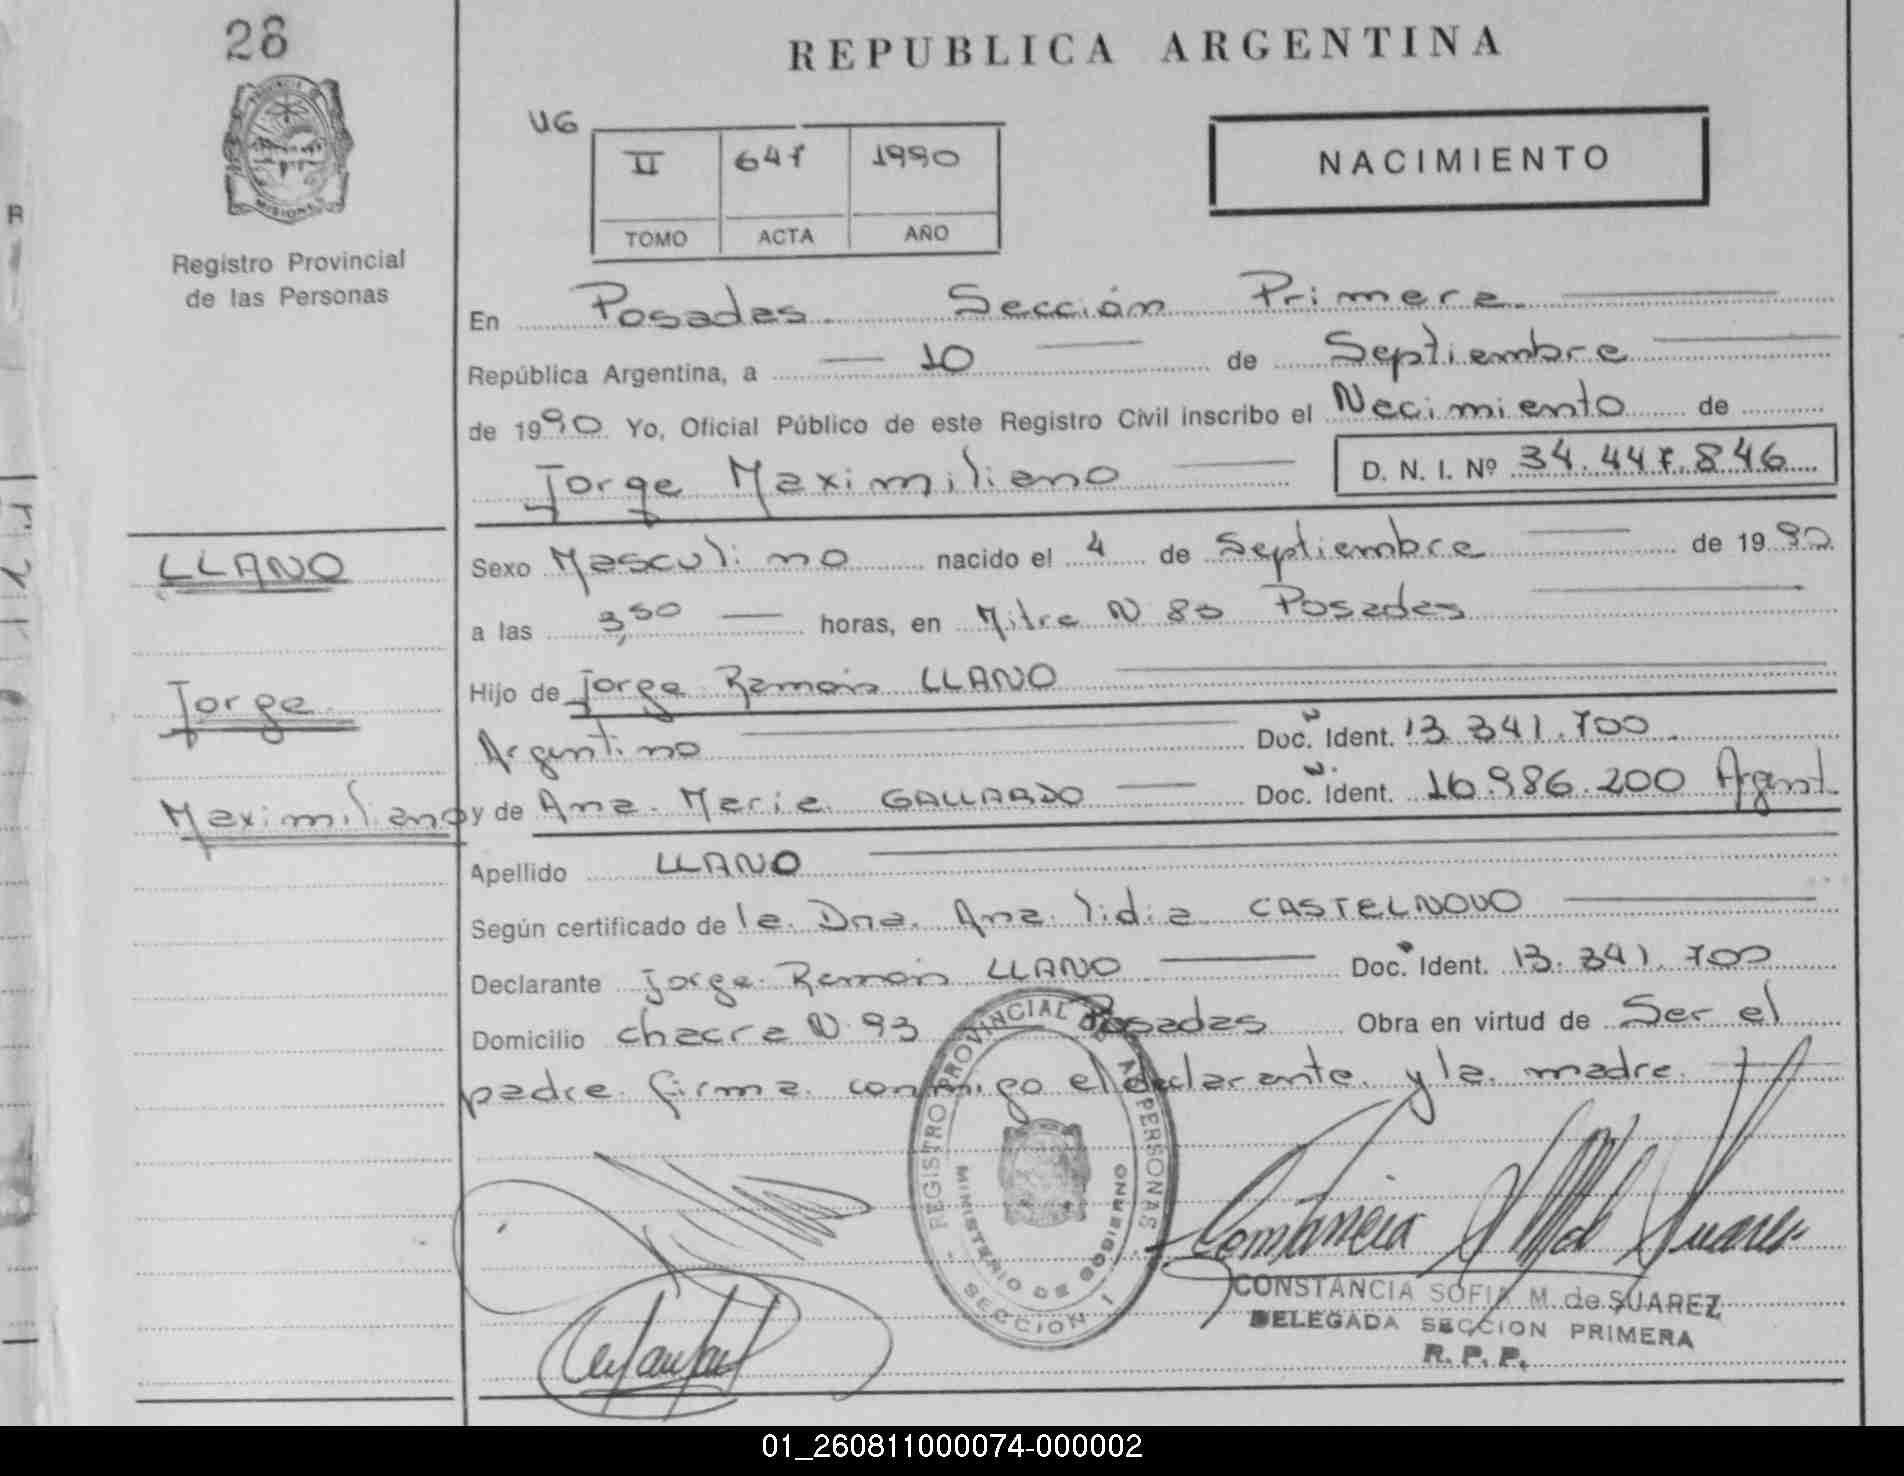 28
REPUBLICA ARGENTINA
PROVINCIA DE
MISIONES
UG
II 647 1990
TOMO ACTA AÑO
NACIMIENTO
Registro Provincial
de las Personas
En Posadas Sección Primera
República Argentina, a 10 de Septiembre
de 1990 Yo, Oficial Público de este Registro Civil inscribo el Nacimiento de
Jorge Maximiliano D. N. I. Nº 34.447.846
LLANO
Jorge
Maximiliano
Sexo Masculino nacido el 4 de Septiembre de 1990
a las 3,50 horas, en Mitre N 80 Posadas
Hijo de Jorge Ramón LLANO
Argentino Doc. Ident. 13.341.700
y de Ana Maria GALLARDO Doc. Ident. 16.986.200 Argent.
Apellido LLANO
Según certificado de la Dra. Ana lidia CASTELNOVO
Declarante Jorge Ramón LLANO Doc. Ident. 13.341.700
Domicilio chacra N 93 Posadas Obra en virtud de Ser el
padre firma conmigo el declarante y la madre
REGISTRO PROVINCIAL DE LAS PERSONAS
MINISTERIO DE GOBIERNO
SECCION 1
CONSTANCIA SOFIA M. de SUAREZ
DELEGADA SECCION PRIMERA
R. P. P.
01_260811000074-000002